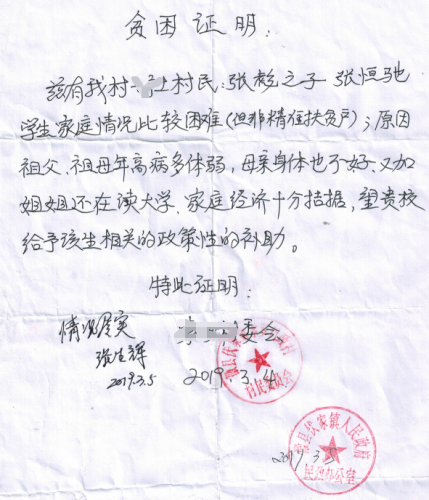 贫困证明:
兹有我村 村民:张彪之子 张恒驰
学生家庭情况比较困难(但非精准扶贫户);原因
祖父、祖母年高病多体弱,母亲身体也不好、又加
姐姐还在读大学、家庭经济十分拮据,望贵校
给予该生相关的政策性的补助。
特此证明:
情况属实 委会
张生辉
2019.3.5 2019.3.4
村民委员会
县伏家镇人民政府
民政办公室